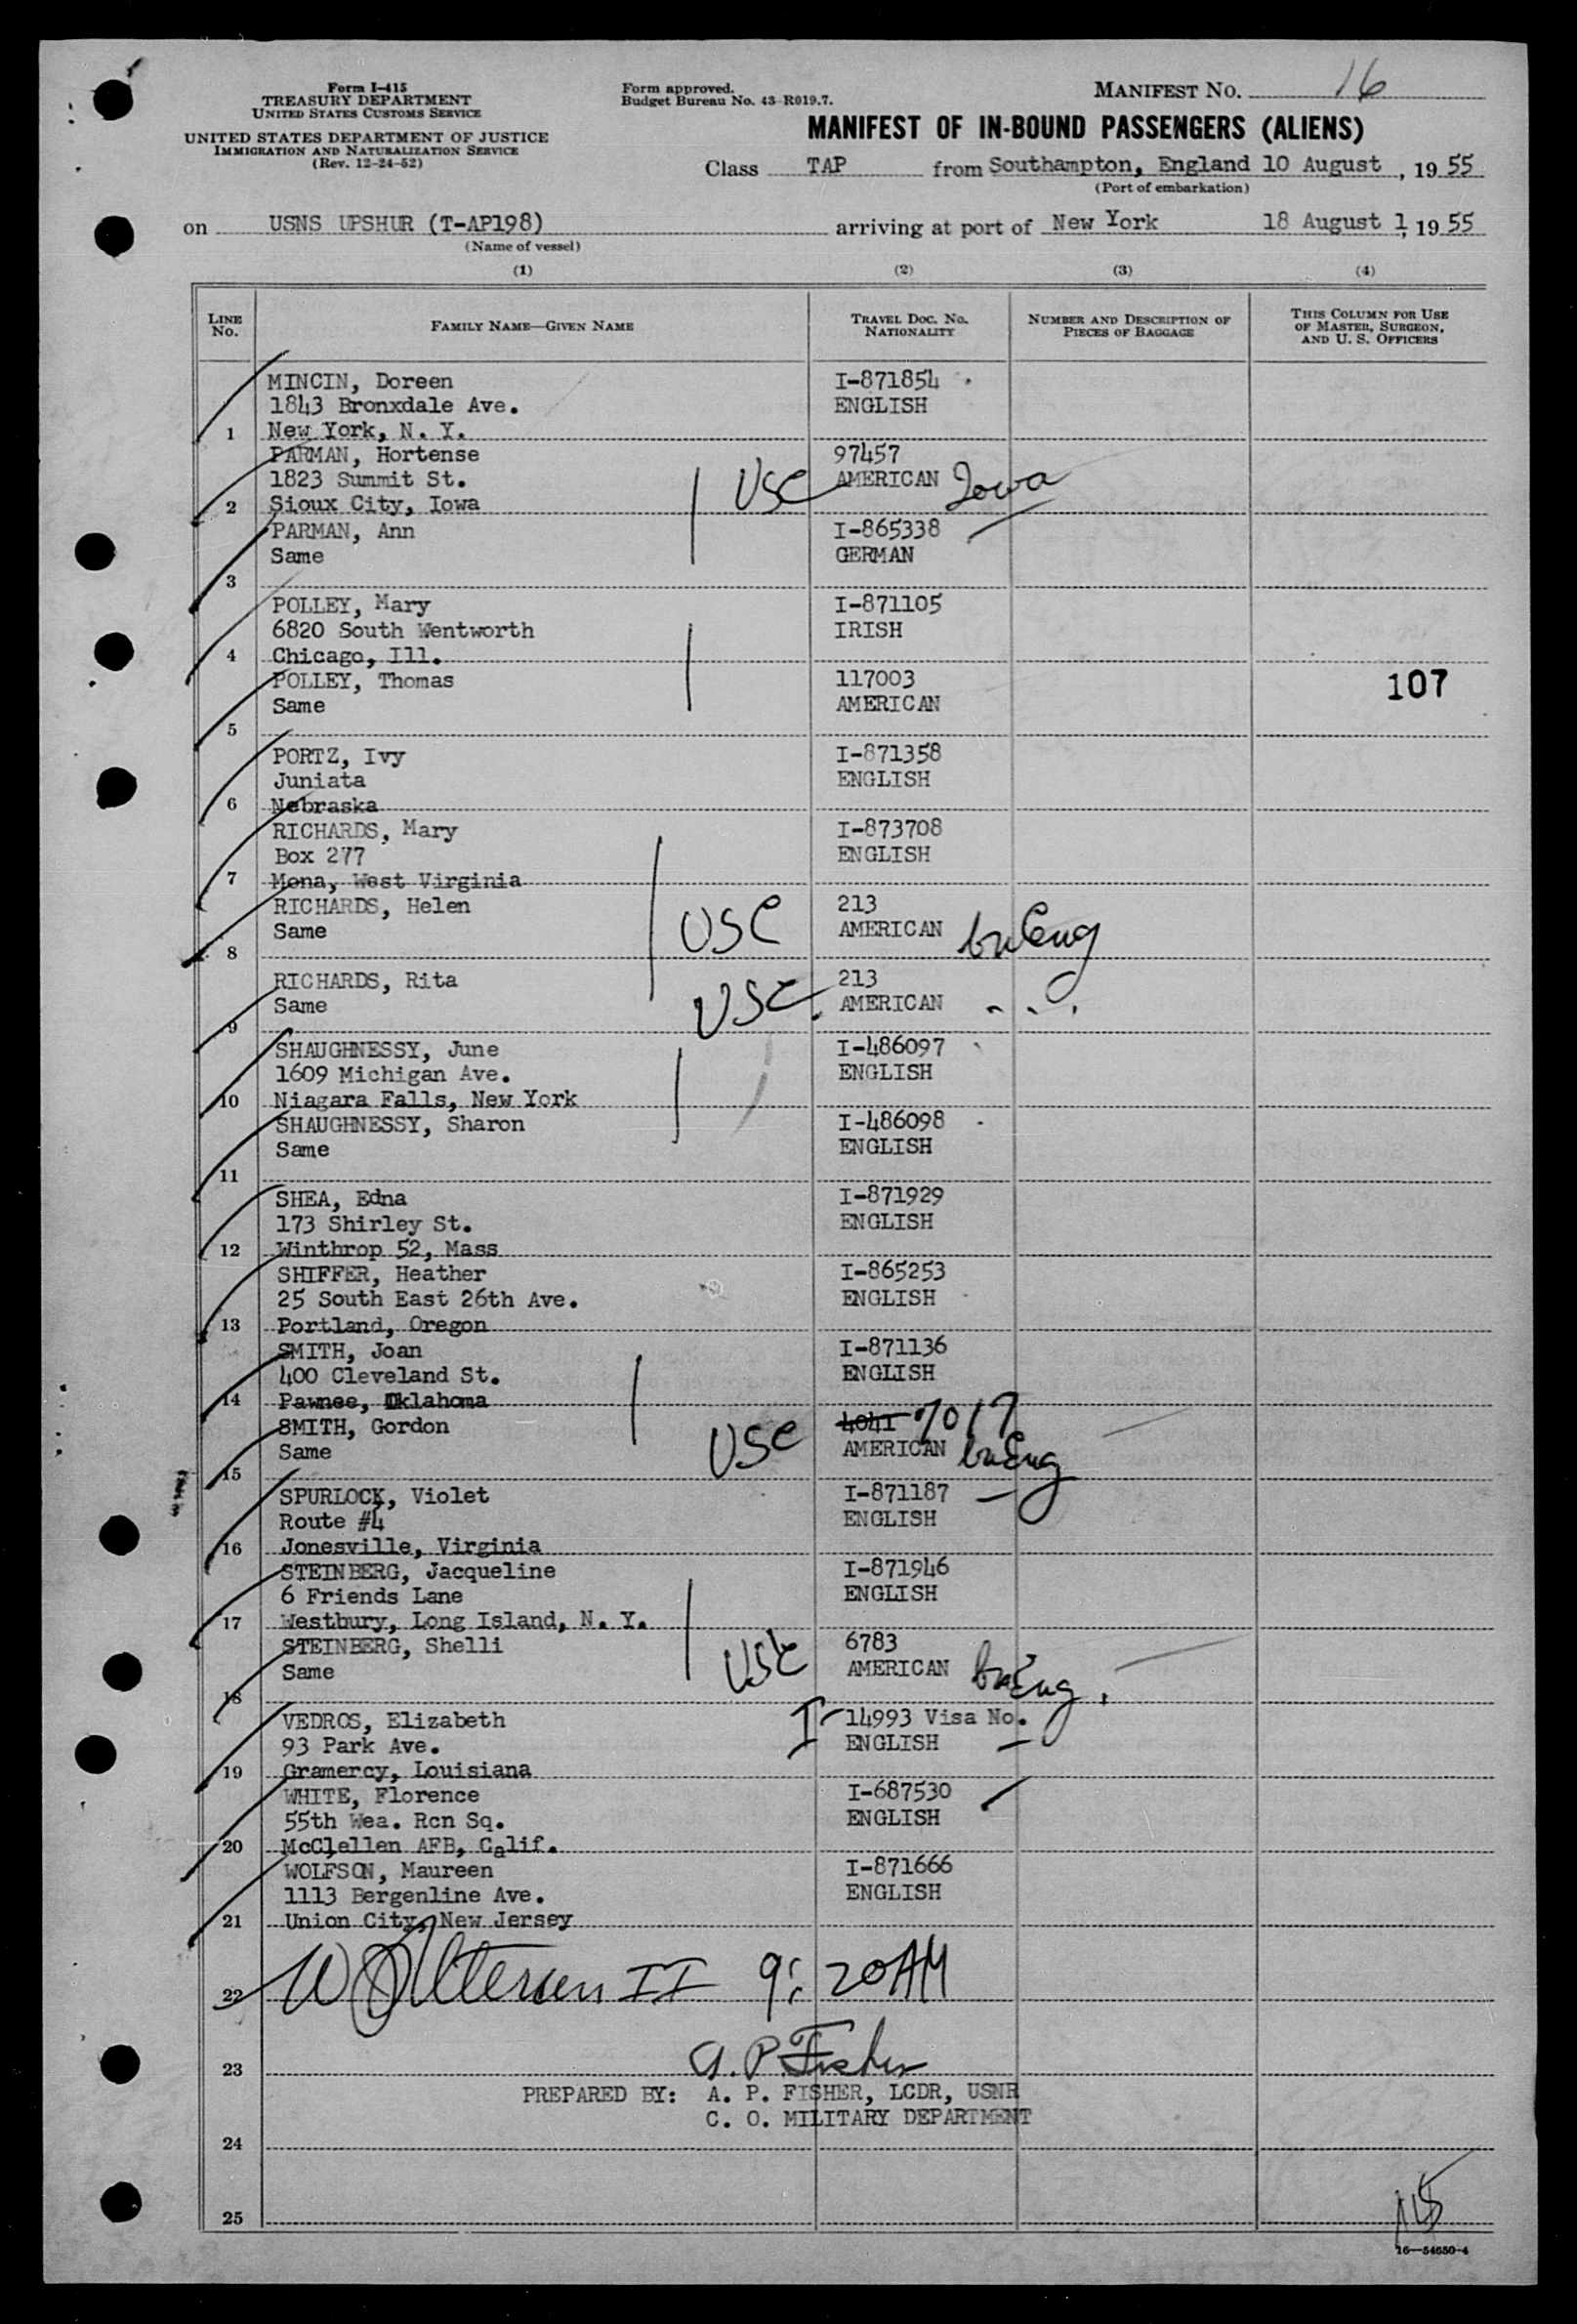 Form I-415
TREASURY DEPARTMENT
UNITED STATES CUSTOMS SERVICE
UNITED STATES DEPARTMENT OF JUSTICE
IMMIGRATION AND NATURALIZATION SERVICE
(Rev. 12-24-52)
Form approved.
Budget Bureau No. 43-R019.7.
MANIFEST NO. 16
MANIFEST OF IN-BOUND PASSENGERS (ALIENS)
Class TAP from Southampton, England 10 August, 19 55
(Port of embarkation)
on USNS UPSHUR (T-AP198) arriving at port of New York 18 August 1, 19 55
(Name of vessel)
(1) (2) (3) (4)
LINE NO. FAMILY NAME—GIVEN NAME TRAVEL DOC. NO. NATIONALITY NUMBER AND DESCRIPTION OF PIECES OF BAGGAGE THIS COLUMN FOR USE OF MASTER, SURGEON, AND U. S. OFFICERS
MINCIN, Doreen I-871854
1843 Bronxdale Ave. ENGLISH
1 New York, N. Y.
PARMAN, Hortense 97457
1823 Summit St. USC AMERICAN Iowa
2 Sioux City, Iowa
PARMAN, Ann I-865338
Same GERMAN
3
POLLEY, Mary I-871105
6820 South Wentworth IRISH
4 Chicago, Ill.
POLLEY, Thomas 117003 107
Same AMERICAN
5
PORTZ, Ivy I-871358
Juniata ENGLISH
6 Nebraska
RICHARDS, Mary I-873708
Box 277 ENGLISH
7 Mona, West Virginia
RICHARDS, Helen 213
Same USC AMERICAN Eng
8
RICHARDS, Rita 213
Same USC AMERICAN
9
SHAUGHNESSY, June I-486097
1609 Michigan Ave. ENGLISH
10 Niagara Falls, New York
SHAUGHNESSY, Sharon I-486098
Same ENGLISH
11
SHEA, Edna I-871929
173 Shirley St. ENGLISH
12 Winthrop 52, Mass
SHIFFER, Heather I-865253
25 South East 26th Ave. ENGLISH
13 Portland, Oregon
SMITH, Joan I-871136
400 Cleveland St. ENGLISH
14 Pawnee, Oklahoma
SMITH, Gordon 4041 7017
Same USC AMERICAN Eng
15
SPURLOCK, Violet I-871187
Route #4 ENGLISH
16 Jonesville, Virginia
STEINBERG, Jacqueline I-871946
6 Friends Lane ENGLISH
17 Westbury, Long Island, N. Y.
STEINBERG, Shelli 6783
Same USC AMERICAN Eng.
18
VEDROS, Elizabeth I-14993 Visa No.
93 Park Ave. ENGLISH
19 Gramercy, Louisiana
WHITE, Florence I-687530
55th Wea. Rcn Sq. ENGLISH
20 McClellen AFB, Calif.
WOLFSON, Maureen I-871666
1113 Bergenline Ave. ENGLISH
21 Union City, New Jersey
22 II 9:20 AM
A. P. Fisher
23
PREPARED BY: A. P. FISHER, LCDR, USNR
C. O. MILITARY DEPARTMENT
24
25
16—54650-4